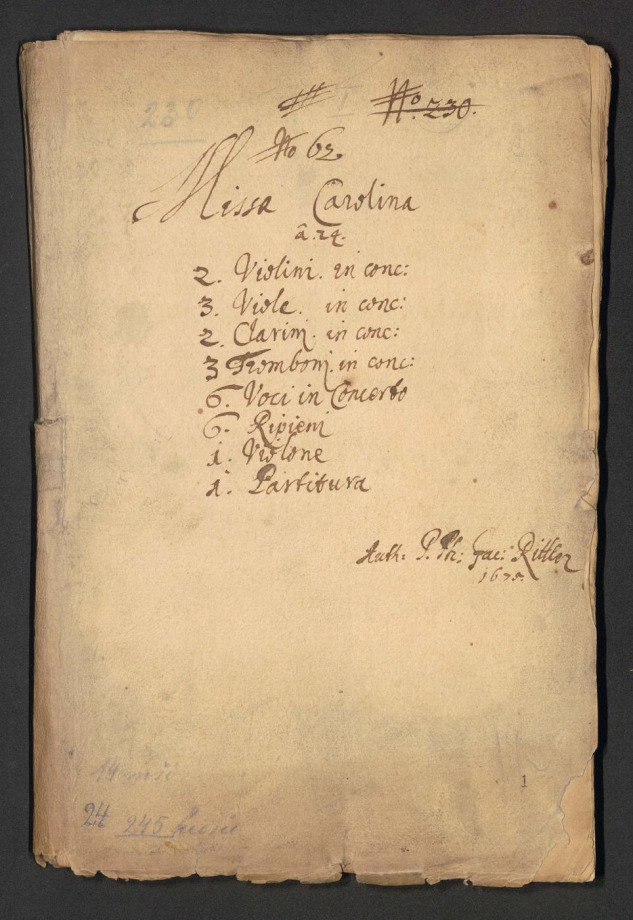 230
No. 230.
No 62.
Missa Carolina
â. 24.
2. Violini. in conc:
3. Viole. in conc:
2. Clarini. in conc:
3 Tromboni. in conc:
6. Voci in Concerto
6. Ripieni
1. Violone
1. Partitura
Auth: P. Ph: Jac: Rittler
1675.
1
24 245